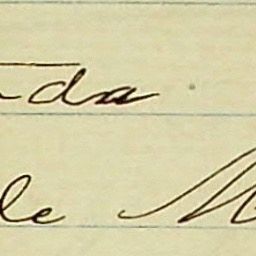 da
de M